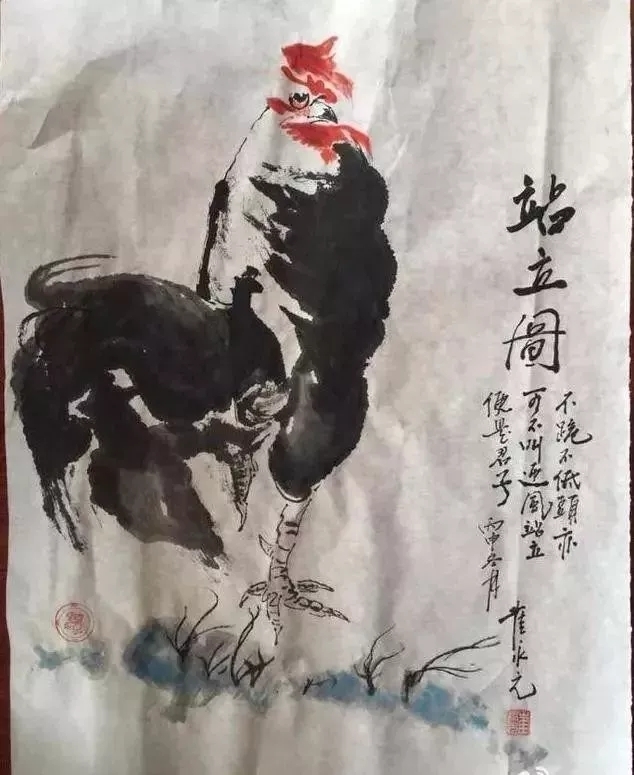 站立圖
不跪不低頭亦
可不叫迎風站立
便是君子 丙申冬月
崔永元